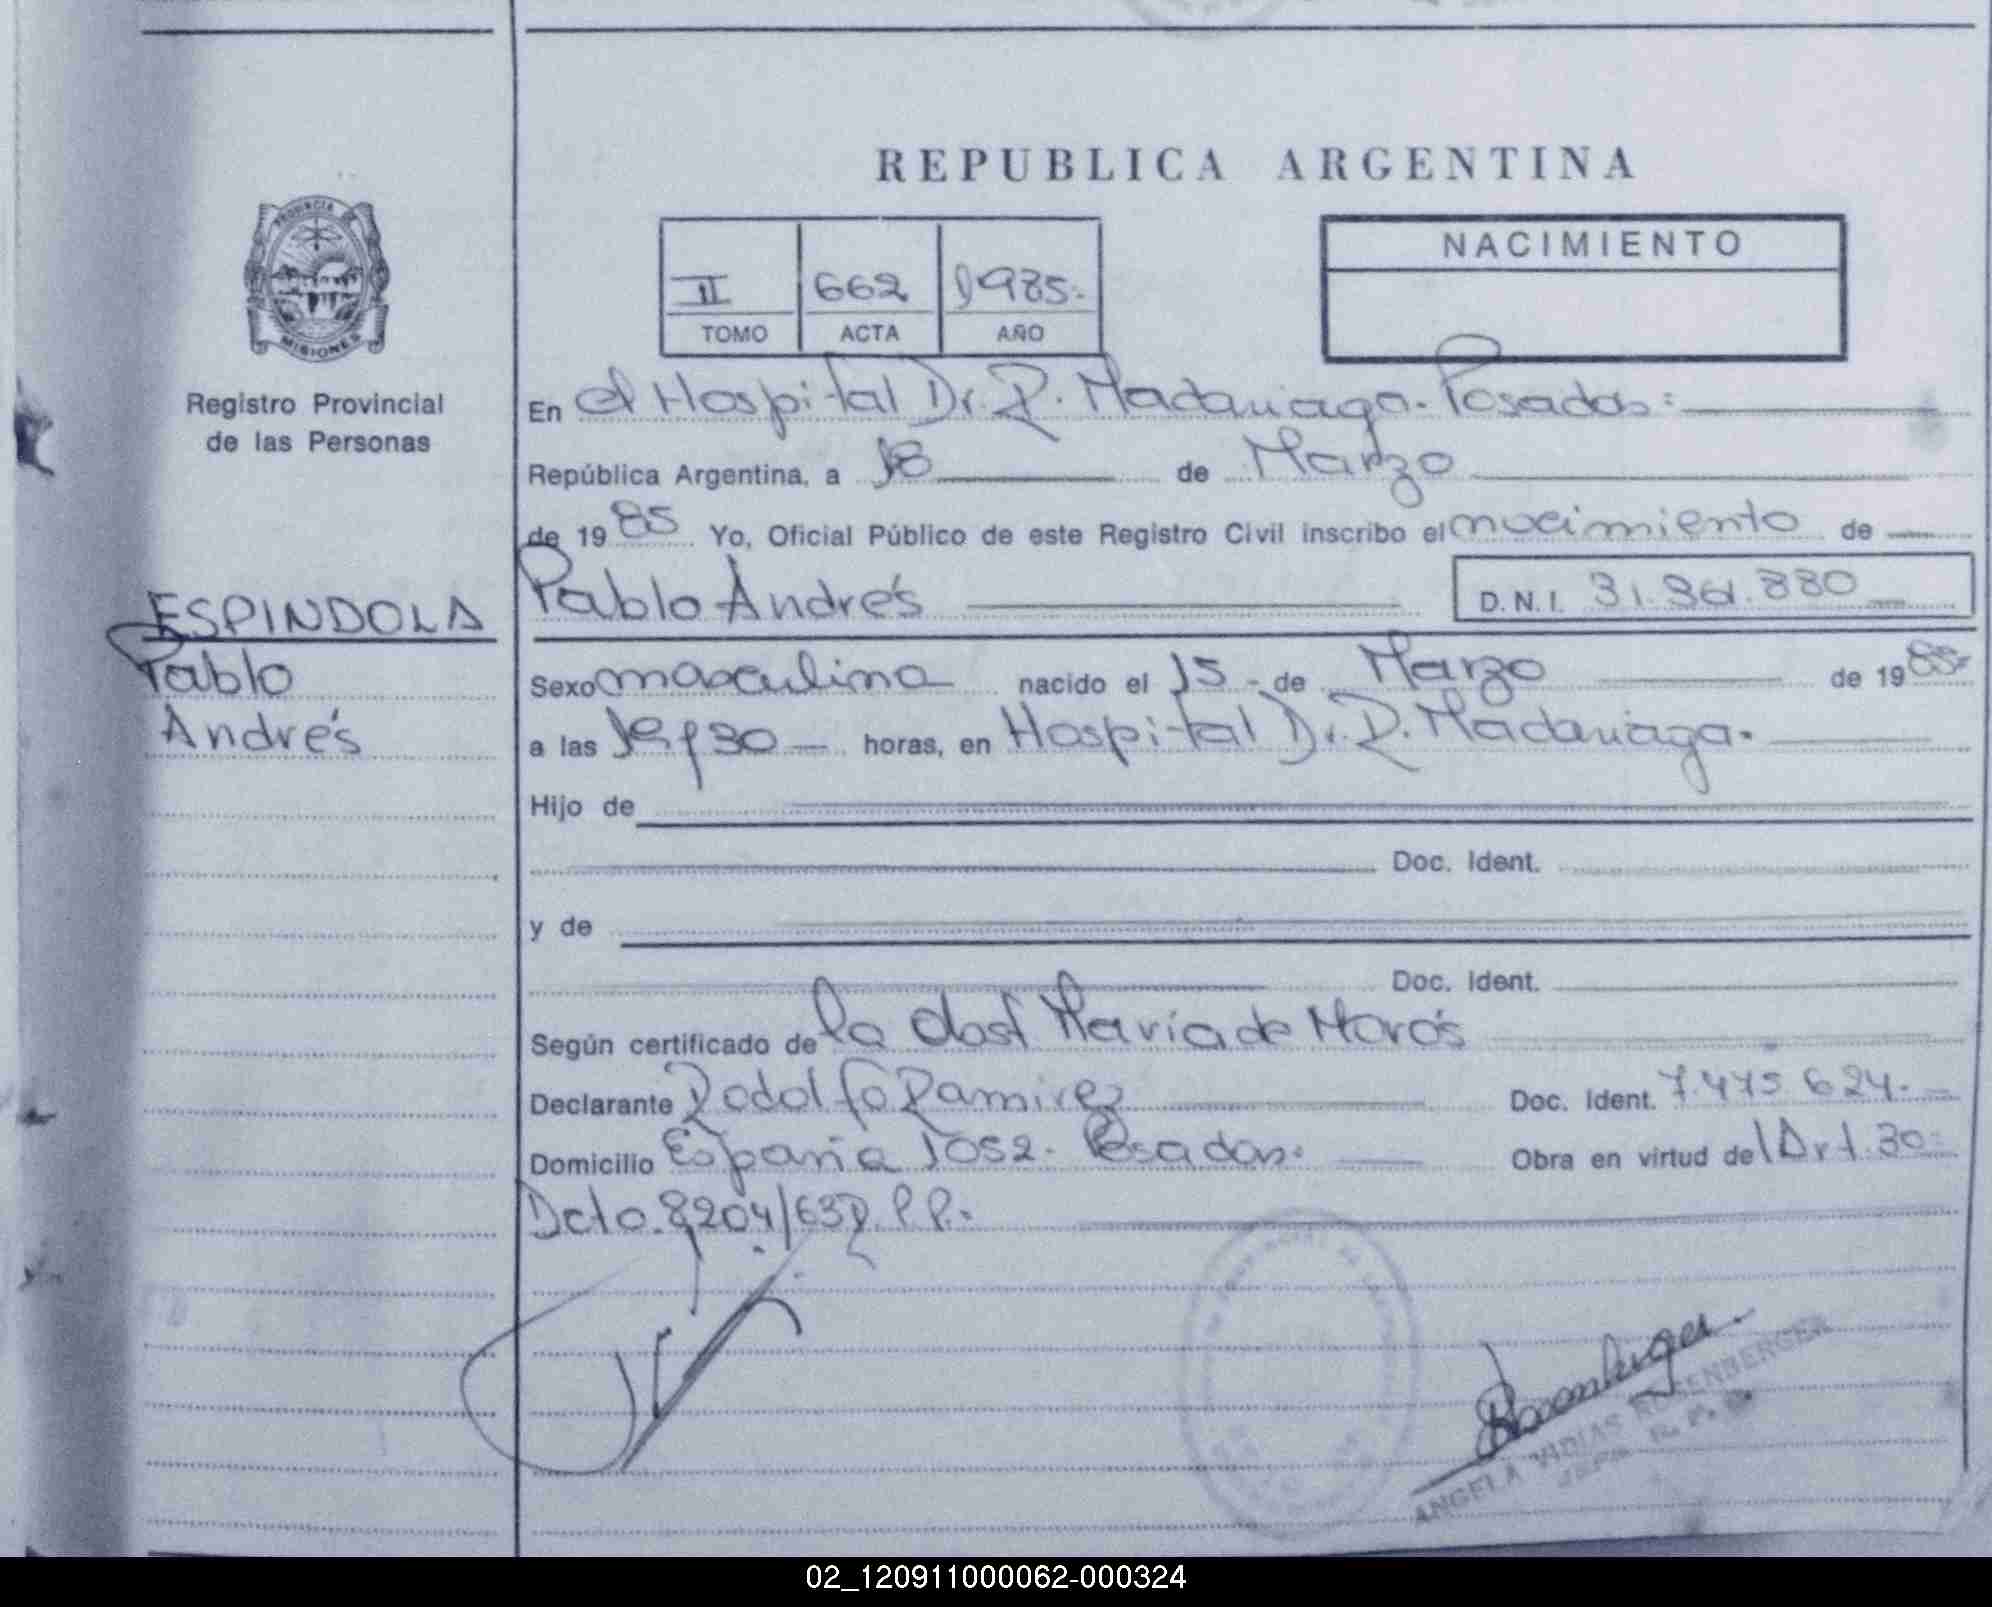 REPUBLICA ARGENTINA
PROVINCIA DE
MISIONES
Registro Provincial
de las Personas
II 662 1985.
TOMO ACTA AÑO
NACIMIENTO
En el Hospital Dr. R. Madariaga. Posadas:
República Argentina, a 18 de Marzo
de 1985 Yo, Oficial Público de este Registro Civil inscribo el nacimiento de
ESPINDOLA
Pablo
Andrés
Pablo Andrés D.N.I. 880
Sexo masculino nacido el 15 de Marzo de 1985
a las y 30 horas, en Hospital Dr. R. Madariaga.
Hijo de
Doc. Ident.
y de
Doc. Ident.
Según certificado de la Obst María de
Declarante Rodolfo Ramirez Doc. Ident. 7.475.624.
Domicilio España 1052. Posadas. Obra en virtud del Art. 30
Dcto. 8204/63 P.P.
ANGELA ROSENBERGER
02_120911000062-000324